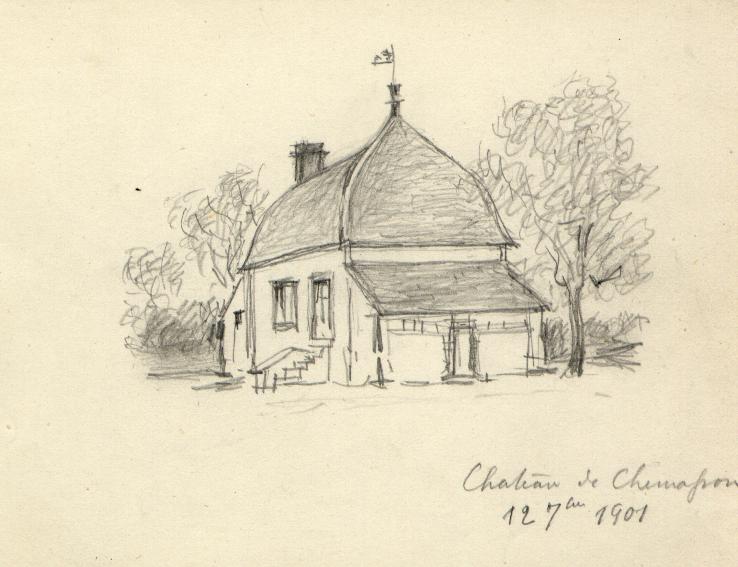 Chateau de Chemasson
12 7bre 1901